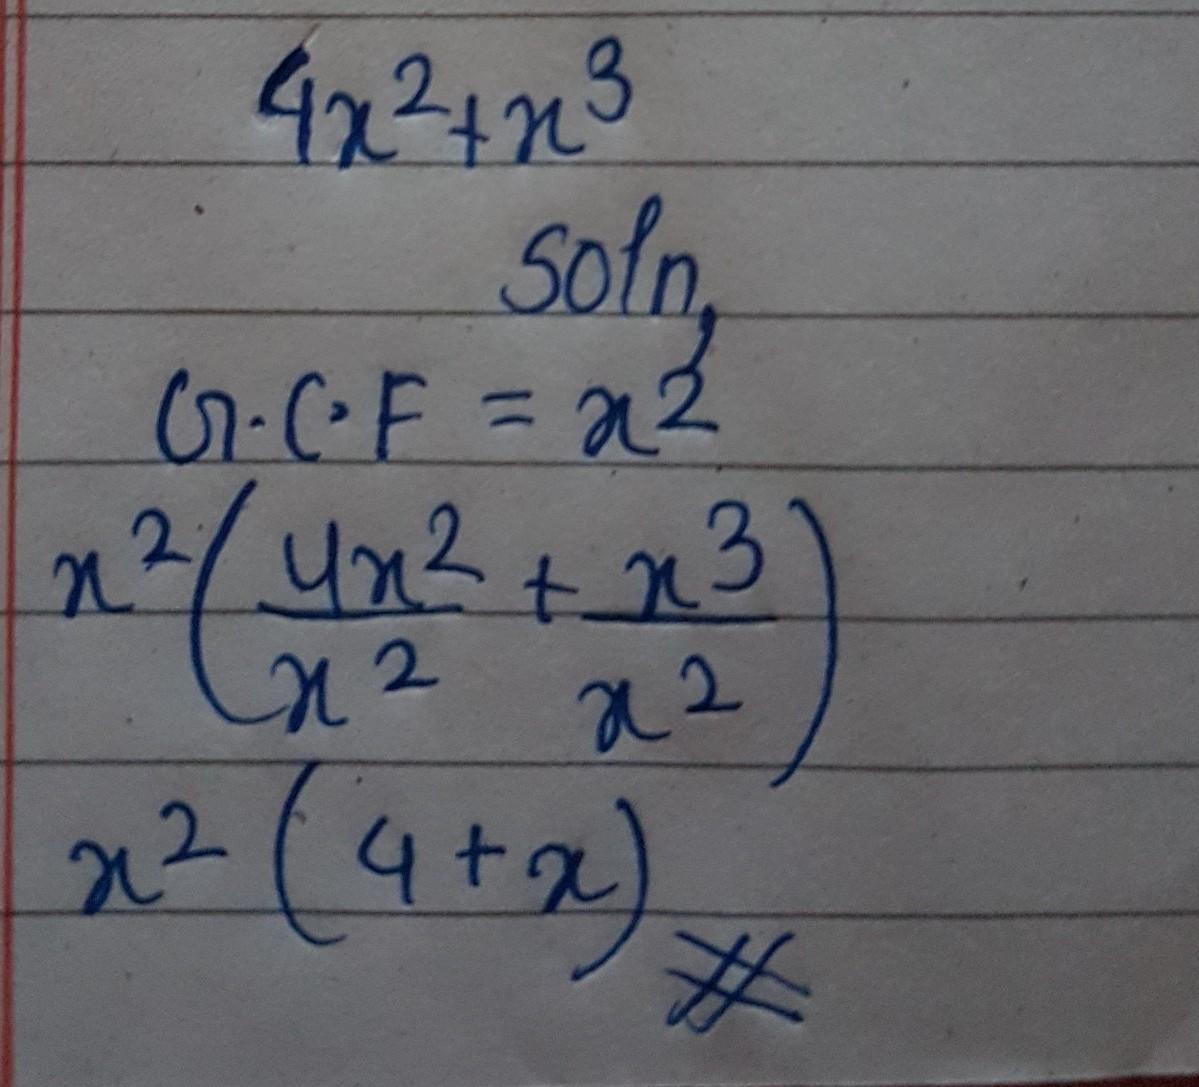 4x²+x³
Soln,
G.C.F = x²
x²(4x²/x² + x³/x²)
x²(4+x)